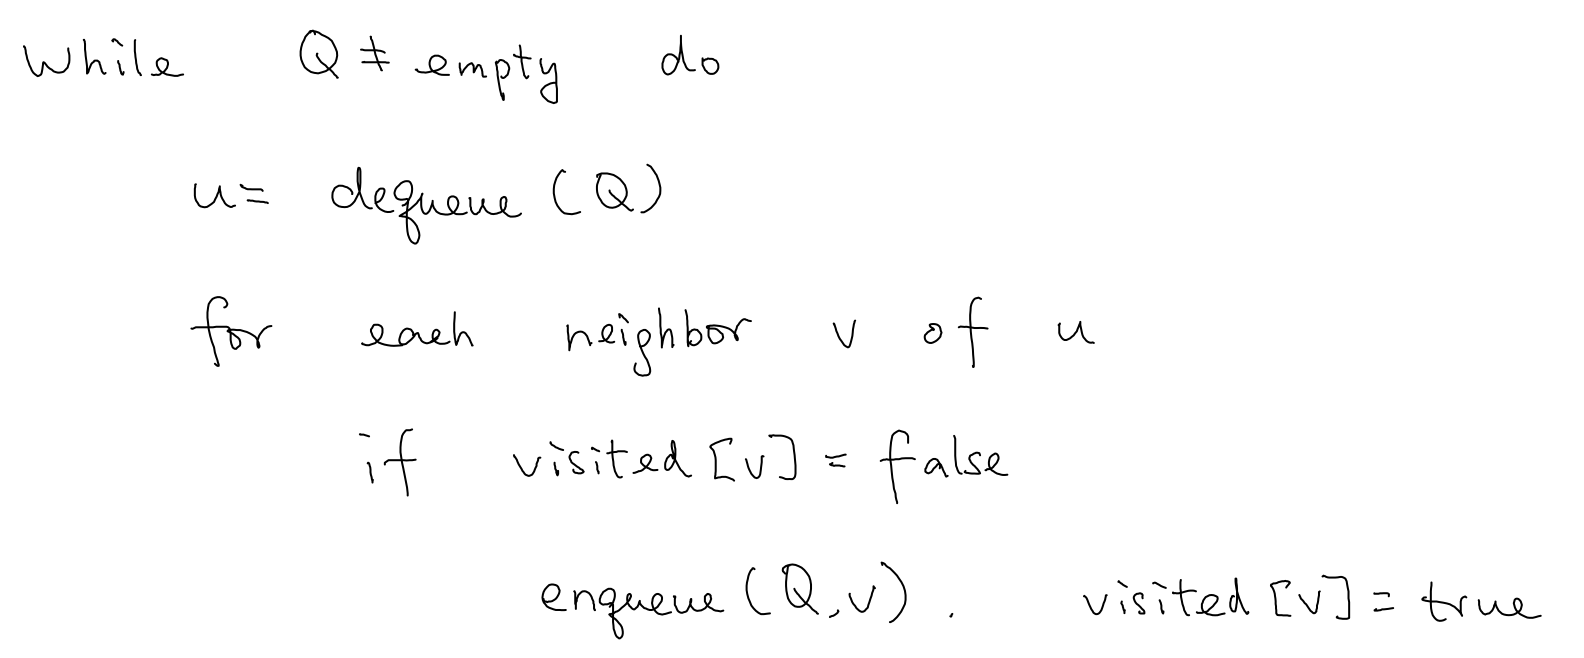 While Q ≠ empty do
u= dequeue (Q)
for each neighbor v of u
if visited [v] = false
enqueue (Q,v). visited [v] = true